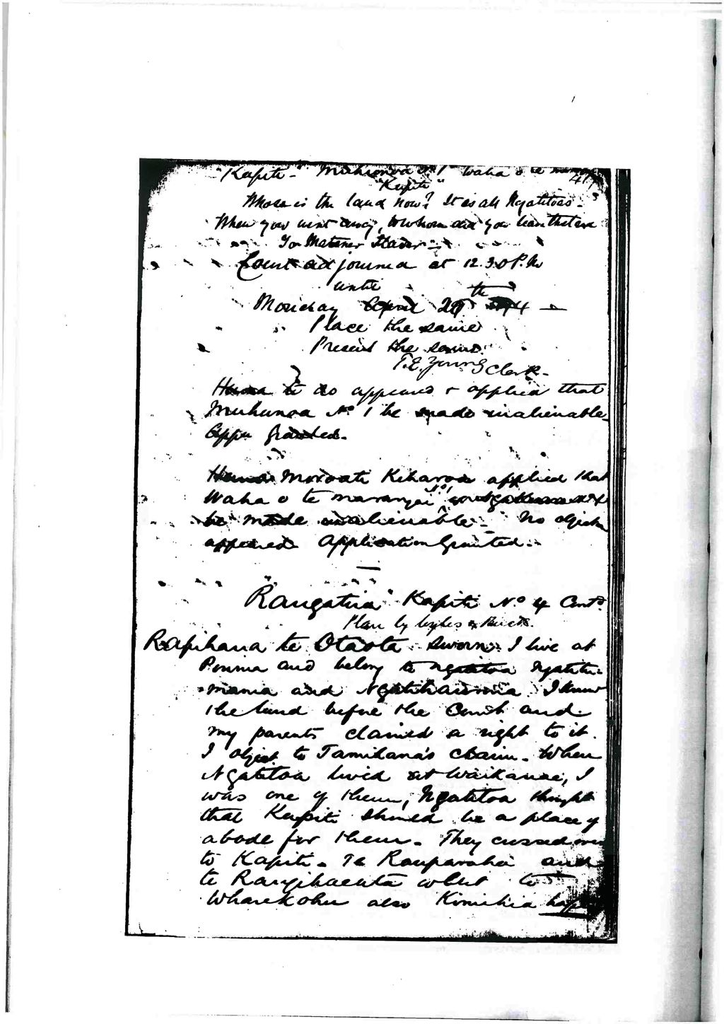 "Kapiti" Muhunoa No 1 Waha o te maran
417
"Kapiti"
Whose is the land now? It is all Ngatitoas -
When you went away, to whom did you leave the land
To Matene
Court adjourned at 12.30 P.M
until
Monday April 20th
Place the same
Present the same
T.E. Young Clerk -
te ao appeared & applied that
Muhunoa No 1 be made inalienable
Appn Granted.
Moroati Kiharoa applied that
Waha o te marangai No 1
be made inalienable - No objection
appeared Application Granted -
"Rangatira" Kapiti No 4 Contd
Plan by
Rapihana te Otaota sworn. I live at
Porirua and belong to Ngatitoa Ngati
mania and I know
the land before the Court and
my parents claimed a right to it.
I object to Tamihana's claim - When
Ngatitoa lived at Waikanae, I
was one of them, Ngatitoa thought
that Kapiti should be a place of
abode for them - They crossed over
to Kapiti - Te Rauparaha and
te Rangihaeata went to
Wharekohu also Kimihia hapu